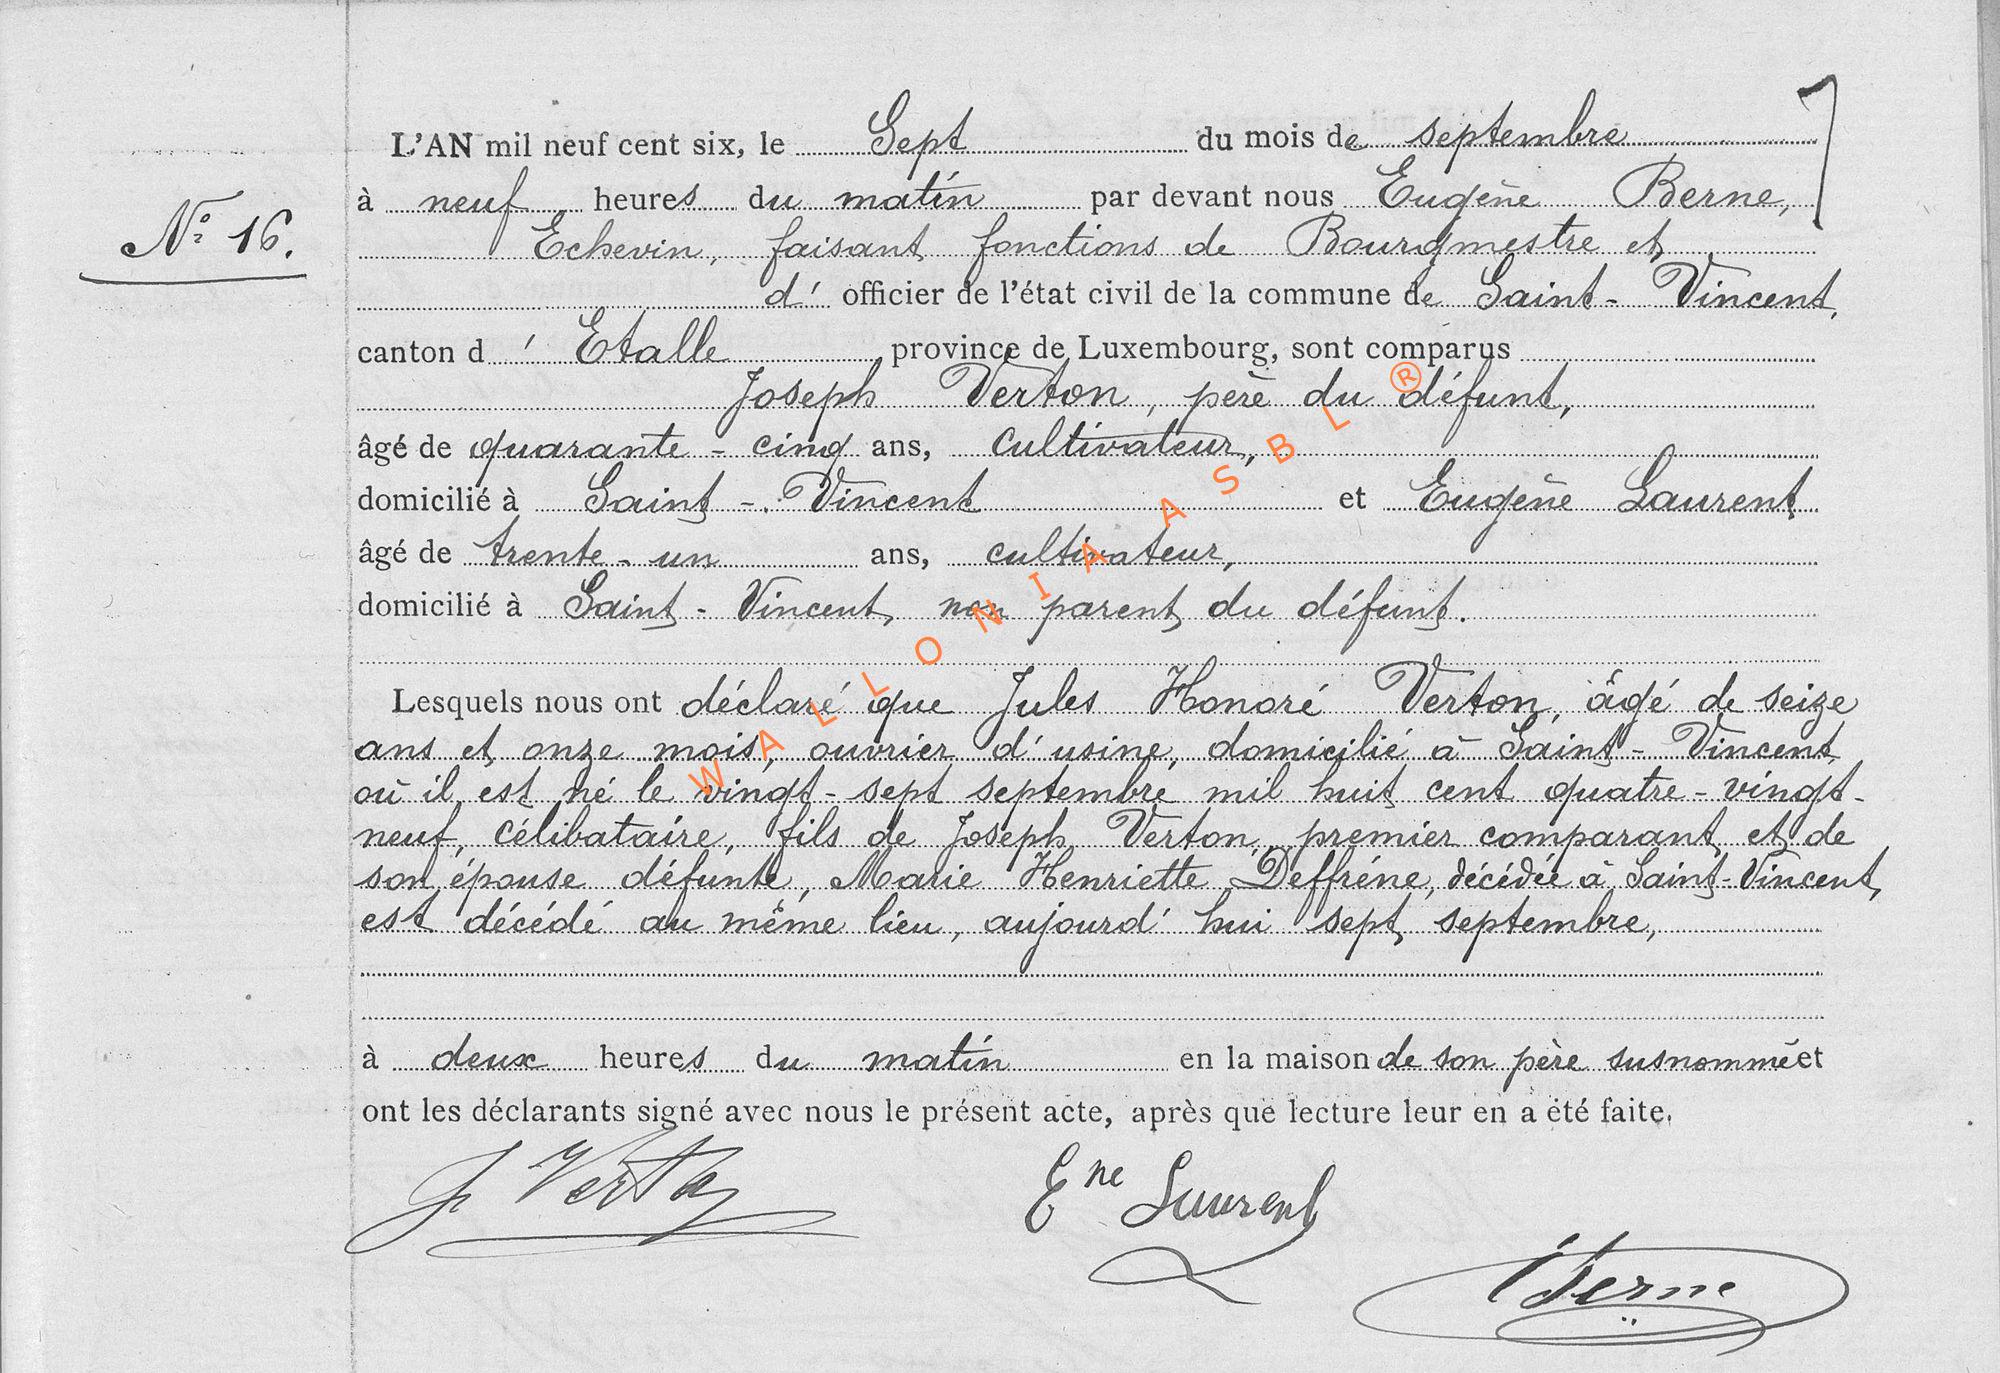 L'AN mil neuf cent six, le Sept du mois de septembre
à neuf heures du matin par devant nous Eugène Berne,
N° 16.
Echevin, faisant fonctions de Bourgmestre et
d' officier de l'état civil de la commune de Saint-Vincent,
canton d' Etalle province de Luxembourg, sont comparus
Joseph Verton, père du défunt,
âgé de quarante-cinq ans, cultivateur,
domicilié à Saint-Vincent et Eugène Laurent
âgé de trente-un ans, cultivateur,
domicilié à Saint-Vincent, non parent du défunt.
Lesquels nous ont déclaré que Jules Honoré Verton, âgé de seize
ans et onze mois, ouvrier d'usine, domicilié à Saint-Vincent,
où il est né le vingt-sept septembre mil huit cent quatre-vingt-
neuf, célibataire, fils de Joseph Verton, premier comparant et de
son épouse défunte, Marie Henriette Deffrène, décédée à Saint-Vincent,
est décédé au même lieu, aujourd'hui sept septembre,
à deux heures du matin en la maison de son père susnommé et
ont les déclarants signé avec nous le présent acte, après que lecture leur en a été faite.
J. Verton
Ene Laurent
Berne
WALLONIA ASBL ®